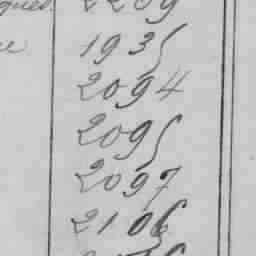 2209
1935
2094
2095
2097
2106